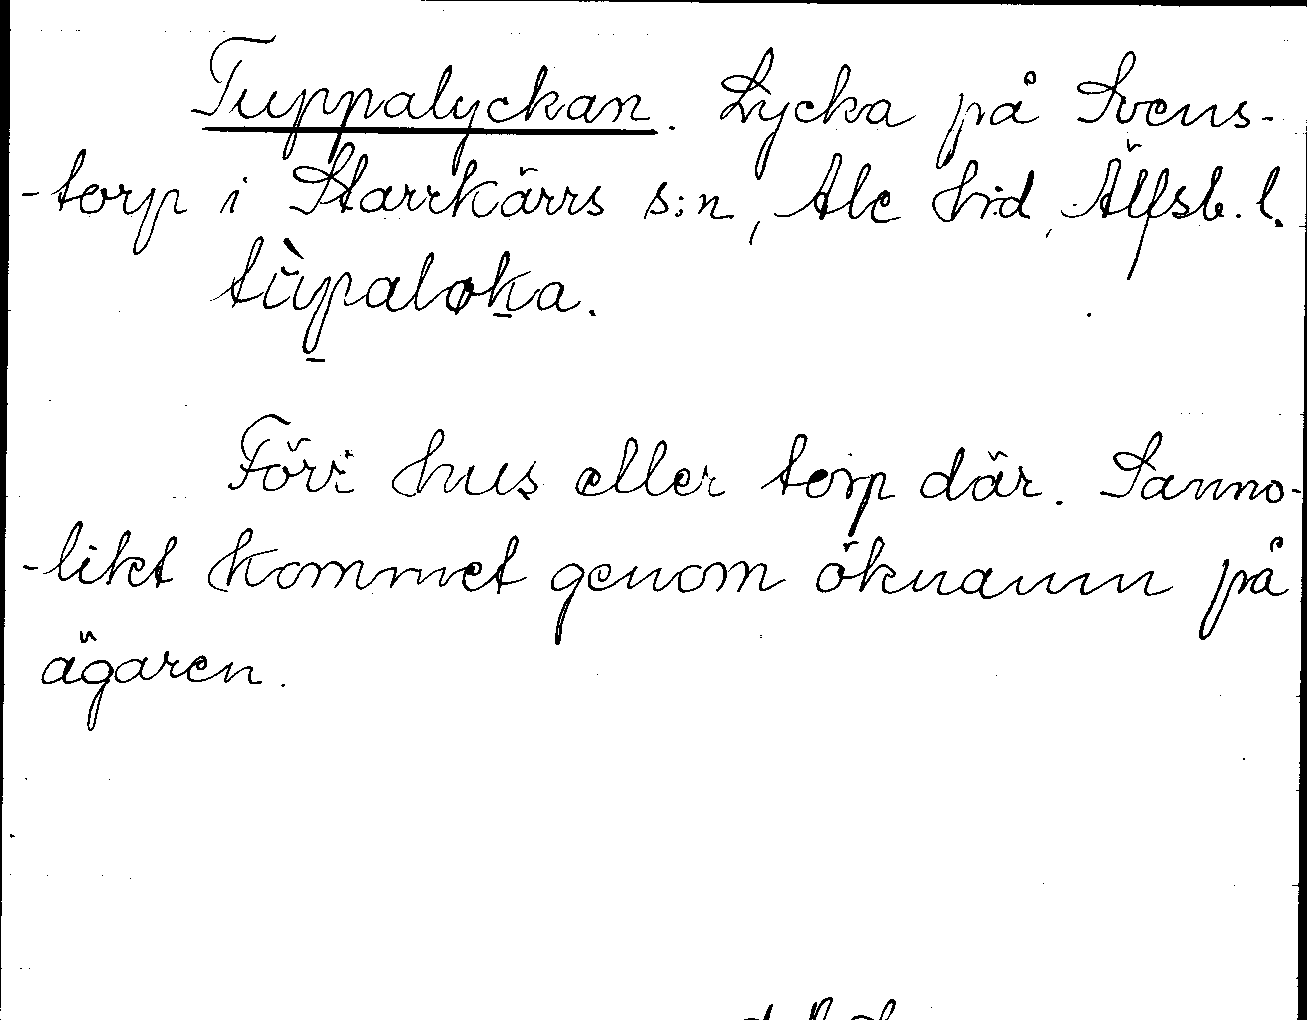 Tuppalyckan. Lycka på Svens-
-torp i Starrkärrs s:n, Ale hrd, Älfsb. l.
tùpaloka.
Förr hus eller torp där. Sanno-
-likt kommet genom öknamn på
ägaren.